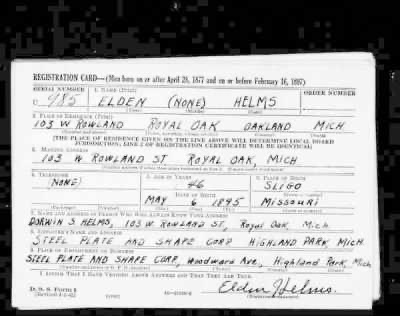 REGISTRATION CARD—(Men born on or after April 28, 1877 and on or before February 16, 1897)
SERIAL NUMBER 1. NAME (Print) ORDER NUMBER
U 985 ELDEN (NONE) HELMS
(First) (Middle) (Last)
2. PLACE OF RESIDENCE (Print)
103 W ROWLAND ROYAL OAK OAKLAND MICH
[THE PLACE OF RESIDENCE GIVEN ON THE LINE ABOVE WILL DETERMINE LOCAL BOARD
JURISDICTION; LINE 2 OF REGISTRATION CERTIFICATE WILL BE IDENTICAL]
3. MAILING ADDRESS
103 W ROWLAND ST. ROYAL OAK, MICH
4. TELEPHONE 5. AGE IN YEARS 6. PLACE OF BIRTH
(NONE) 46 SLIGO
DATE OF BIRTH
MAY 6 1895 Missouri
7. NAME AND ADDRESS OF PERSON WHO WILL ALWAYS KNOW YOUR ADDRESS
DORWIN S. HELMS, 103 W. ROWLAND ST, Royal Oak, Mich.
8. EMPLOYER'S NAME AND ADDRESS
STEEL PLATE AND SHAPE CORP HIGHLAND PARK, MICH.
9. PLACE OF EMPLOYMENT OR BUSINESS
STEEL PLATE AND SHAPE CORP, Woodward Ave, Highland Park, Mich
I AFFIRM THAT I HAVE VERIFIED ABOVE ANSWERS AND THAT THEY ARE TRUE.
D. S. S. Form 1
Elden Helms.